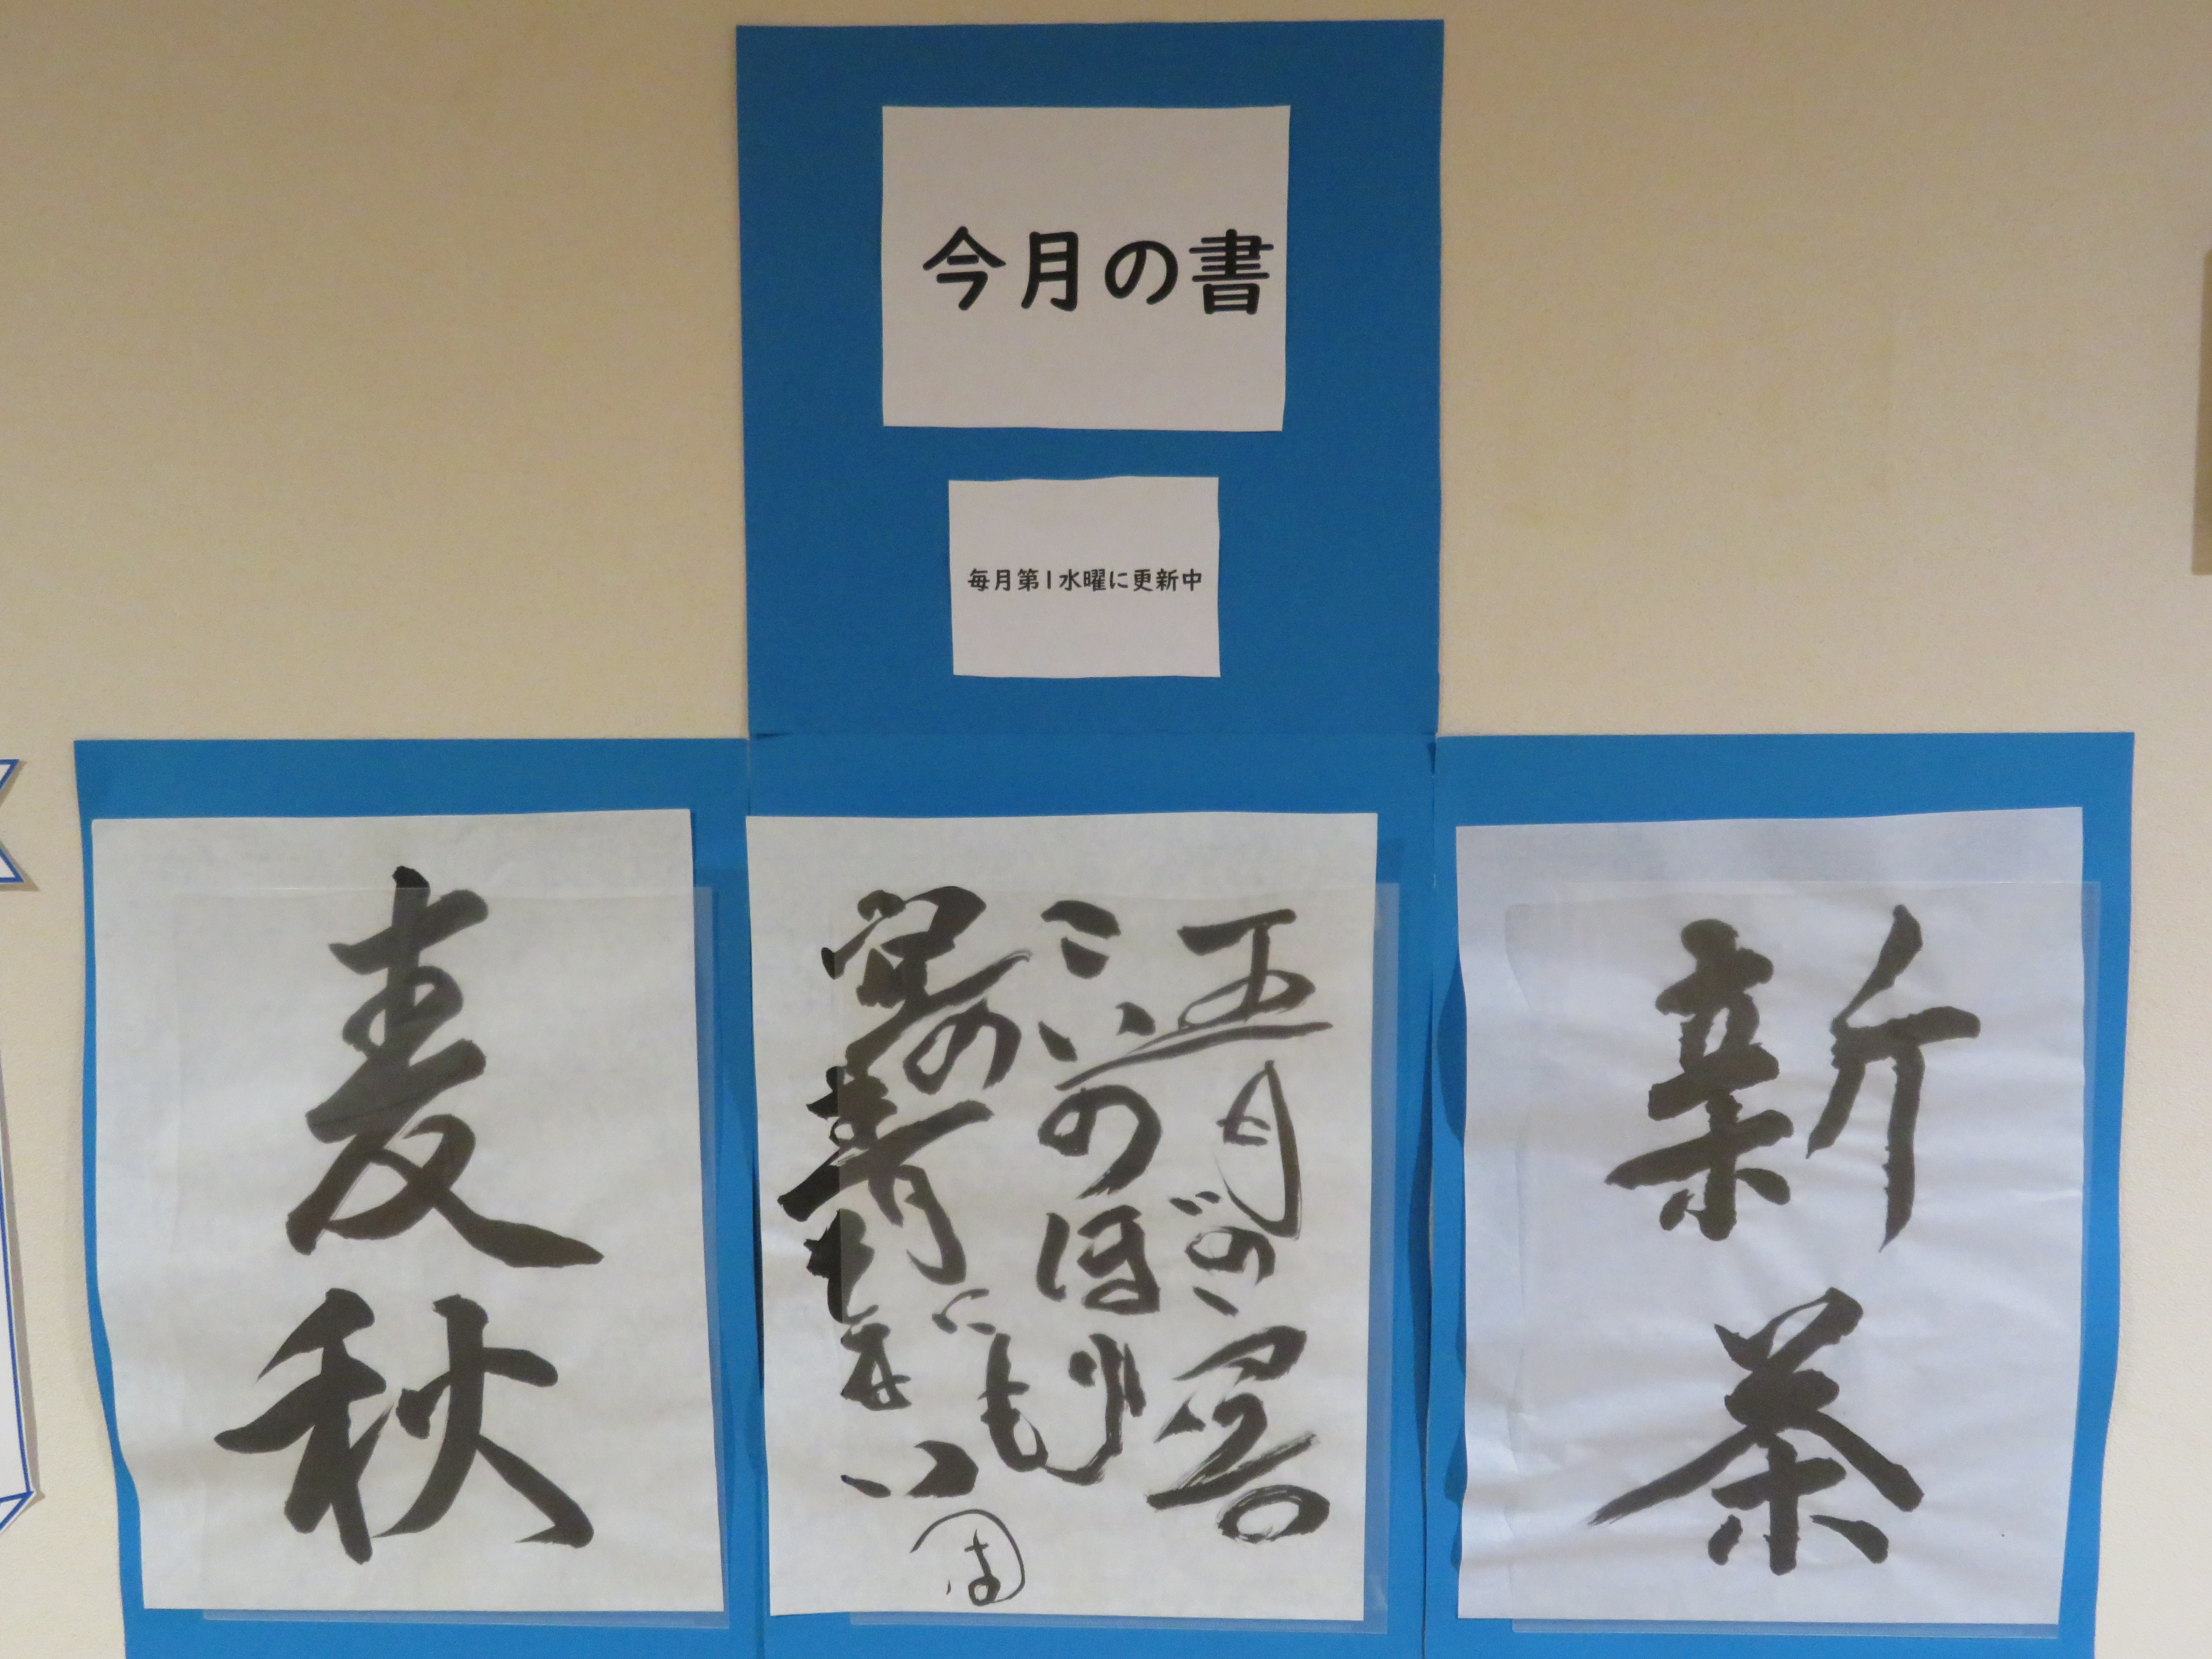 今月の書
毎月第1水曜に更新中
新茶
五月の
こいのぼり
空の青にも
麦秋